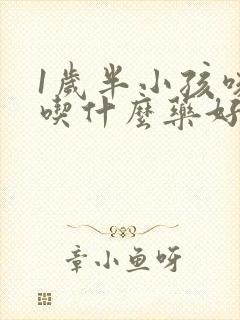 1歲半小孩咳
喫什麼藥好
章小魚呀